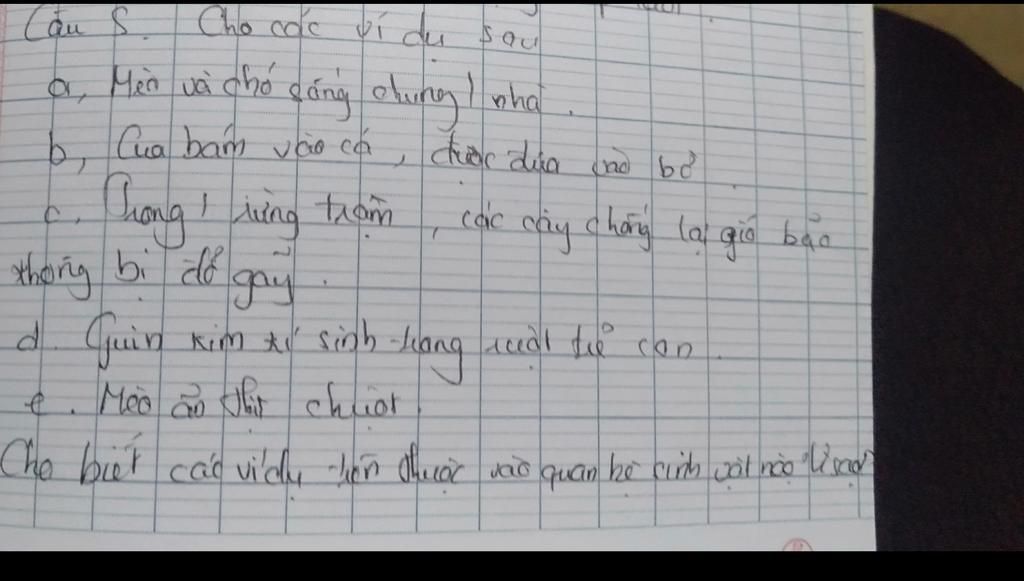 Câu 5. Cho các ví dụ sau
a, Mèo và chó sống chung 1 nhà.
b, Cua bám vào cá, được đưa vào bờ
c, Trong 1 rừng tràm, các cây chống lại gió bão
không bị đổ gãy.
d. Giun kim kí sinh trong ruột trẻ con.
e. Mèo ăn thịt chuột
Cho biết các ví dụ trên thuộc vào quan hệ sinh vật nào? Vì sao?